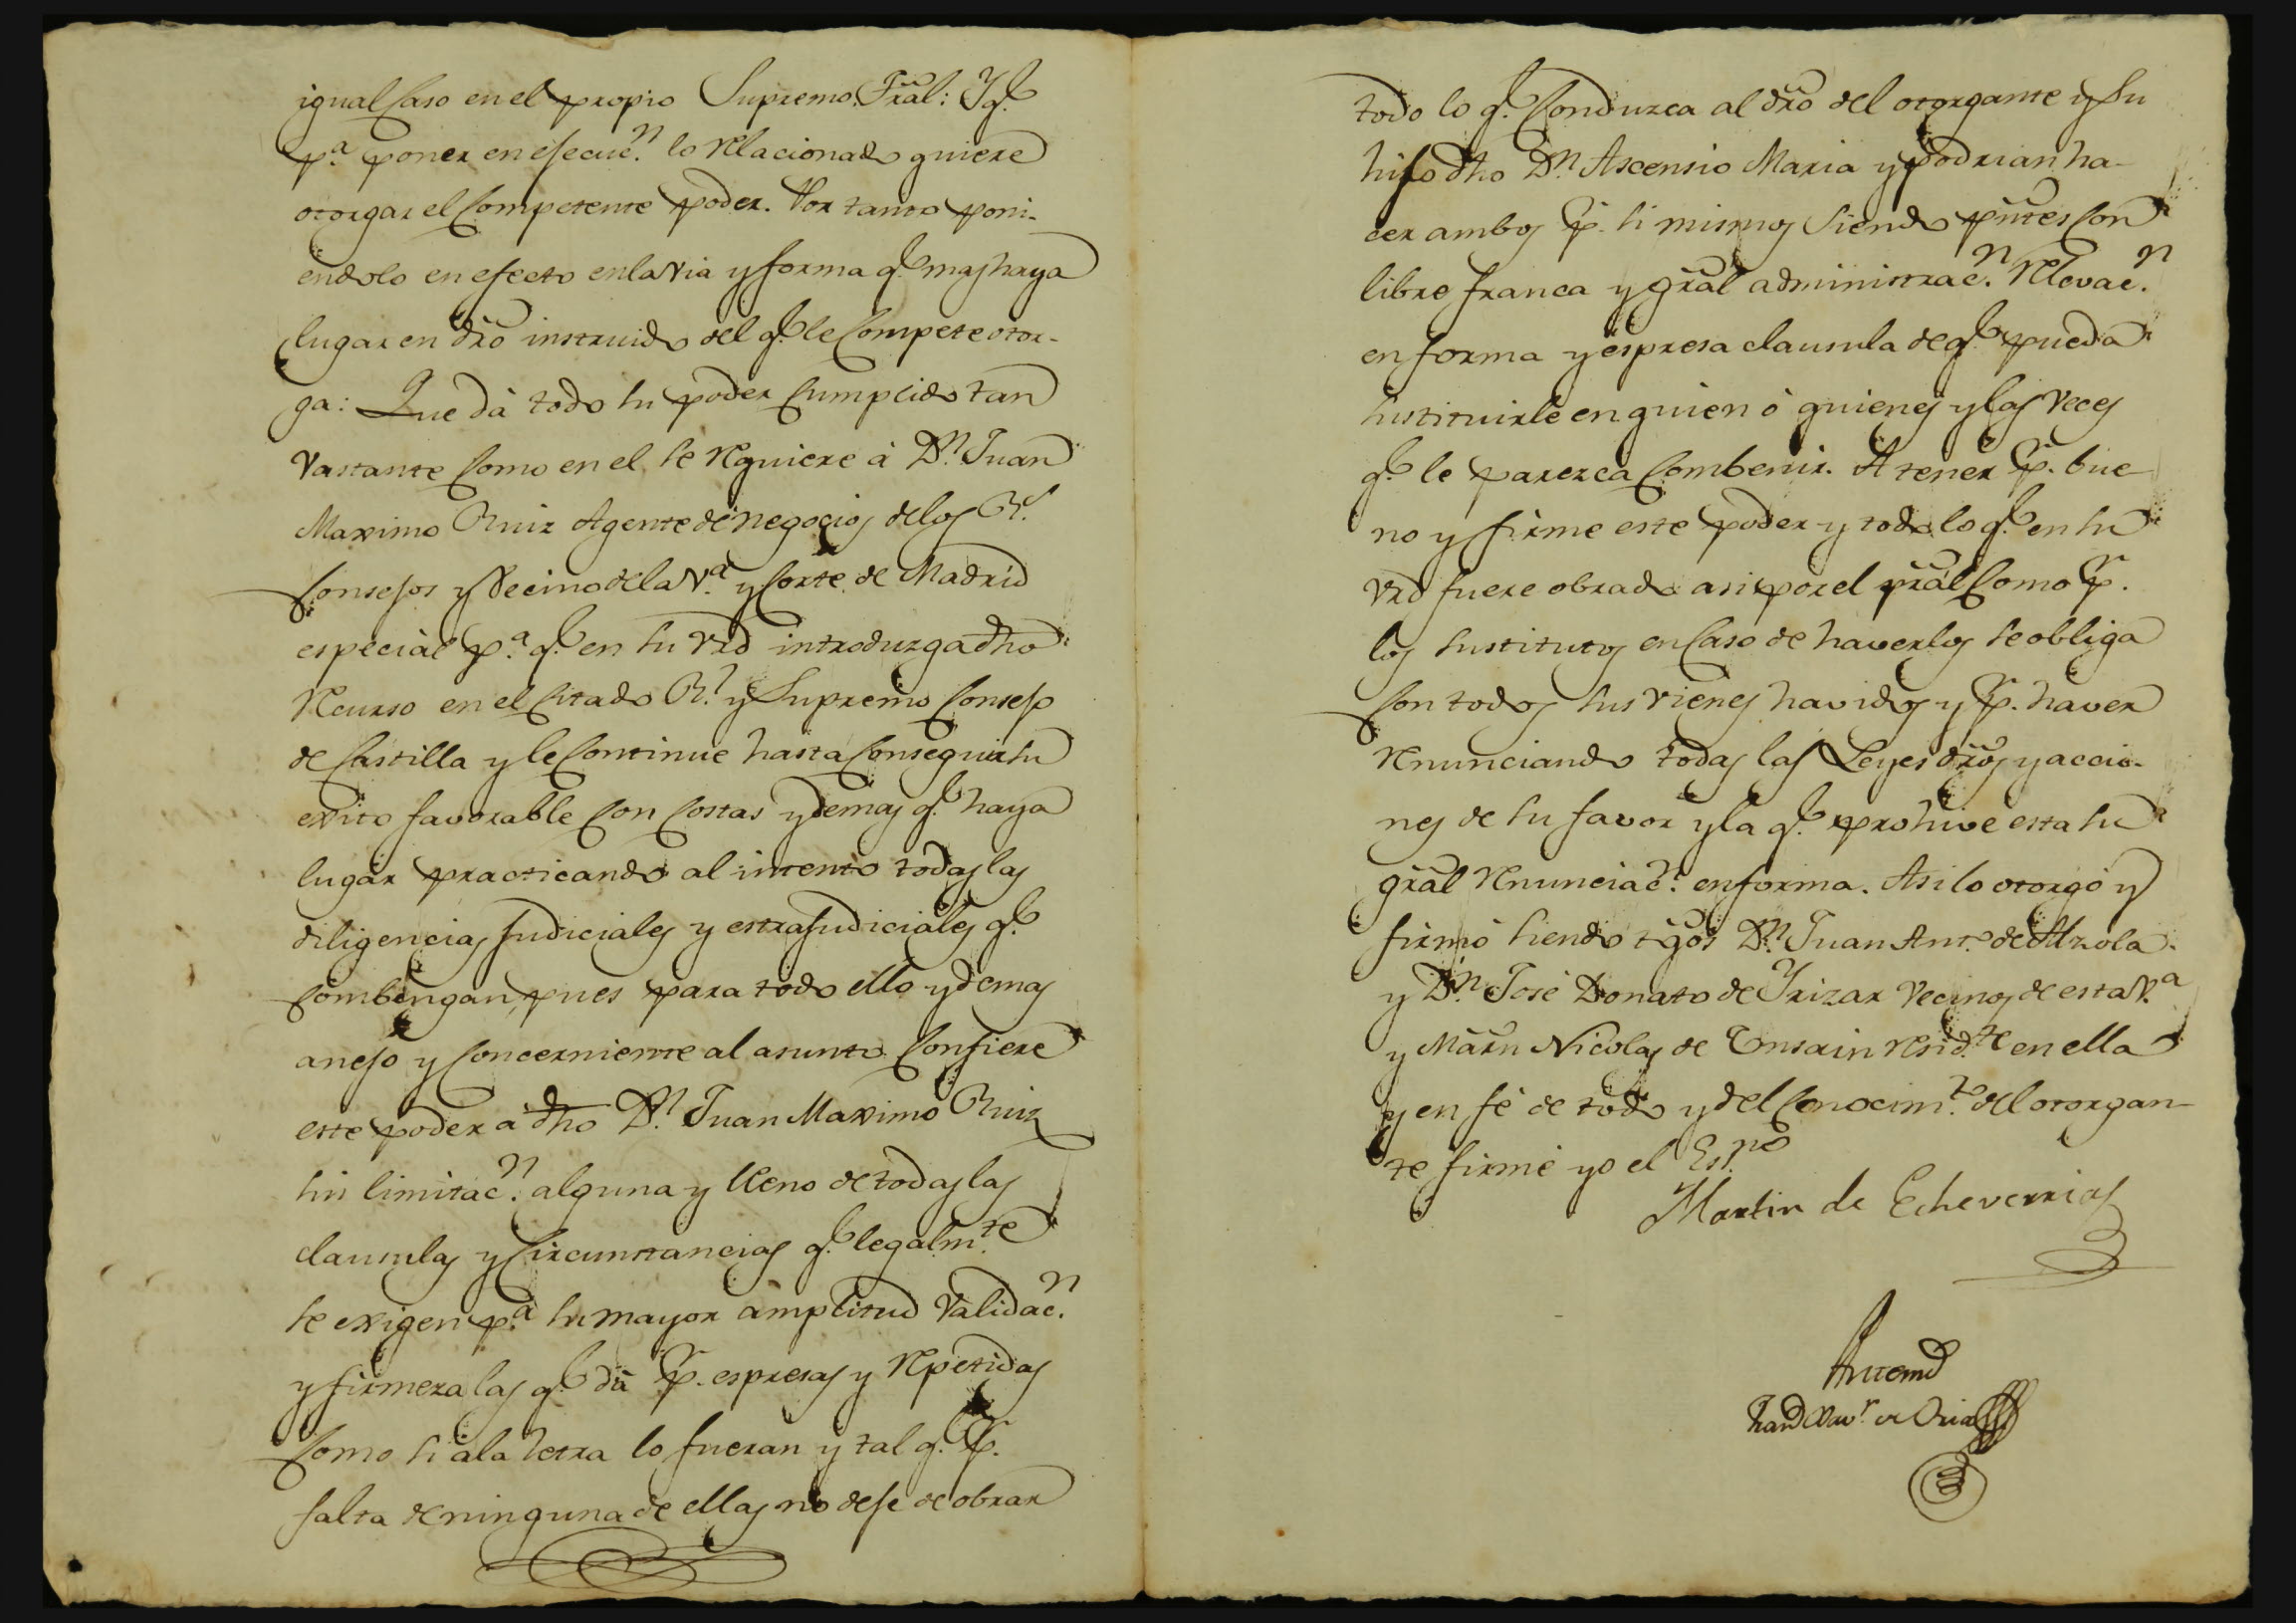 igual Caso en el propio Supremo Tral: Y q.e
p.a poner en ejecuc.n lo relacionado quiere
otorgar el Competente poder. Por tanto poni-
endolo en efecto en la via y forma q.e mas haya
lugar en dro instruido del q.e le Compete otor-
ga: Que dà todo su poder Cumplido tan
vastante Como en el se requiere à D.n Juan
Maximo Ruiz Agente de negocios de los R.s
Consejos y Vecino de la V.a y Corte de Madrid
especiàl p.a q.e en su vrd introduzga dho
recurso en el Citado R.l y Supremo Consejo
de Castilla y le Continue hasta Conseguir su
exito favorable Con Costas y demas q.e haya
lugar practicando al intento todas las
diligencias judiciales y estrajudiciales q.e
Combengan, pues para todo ello y demas
anejo y Concerniente al asunto Confiere
este poder à dho D.n Juan Maximo Ruiz
sin limitac.n alguna y lleno de todas las
clausulas y Circunstancias q.e legalm.te
se exigen p.a su mayor amplitud validac.n
y firmeza las q.e dà p.r espresas y repetidas
Como si à la letra lo fueran y tal q.e p.r
falta de ninguna de ellas no deje de obrar
todo lo q.e Conduzca al dro del otorgante y su
hijo dho D.n Ascensio Maria y podrian ha-
cer ambos p.r si mismos siendo pntes Con
libre franca y gral administrac.n relevac.n
en forma y espresa clausula de q.e pueda
sustituirle en quien ò quienes y las veces
q.e le parezca Combenir. A tener p.r bue
no y firme este poder y todo lo q.e en su
vrd fuere obrado asi por el pràl Como p.r
los sustitutos en Caso de haverlos se obliga
Con todos sus vienes havidos y p.r haver
renunciando todas las Leyes dros y accio-
nes de su favor y la q.e prohive esta su
gral renunciac.n en forma. Asi lo otorgó y
firmó siendo tgos D.n Juan Ant.o de Alzola
y D.n José Donato de Yrizar vecinos de esta V.a
y Màrn Nicolas de Ensain resid.te en ella
y en fé de todo y del Conocim.to del otorgan-
te firmé yo el Es.no
Martin de Echeverria
Antemi
Xav.r de Oria